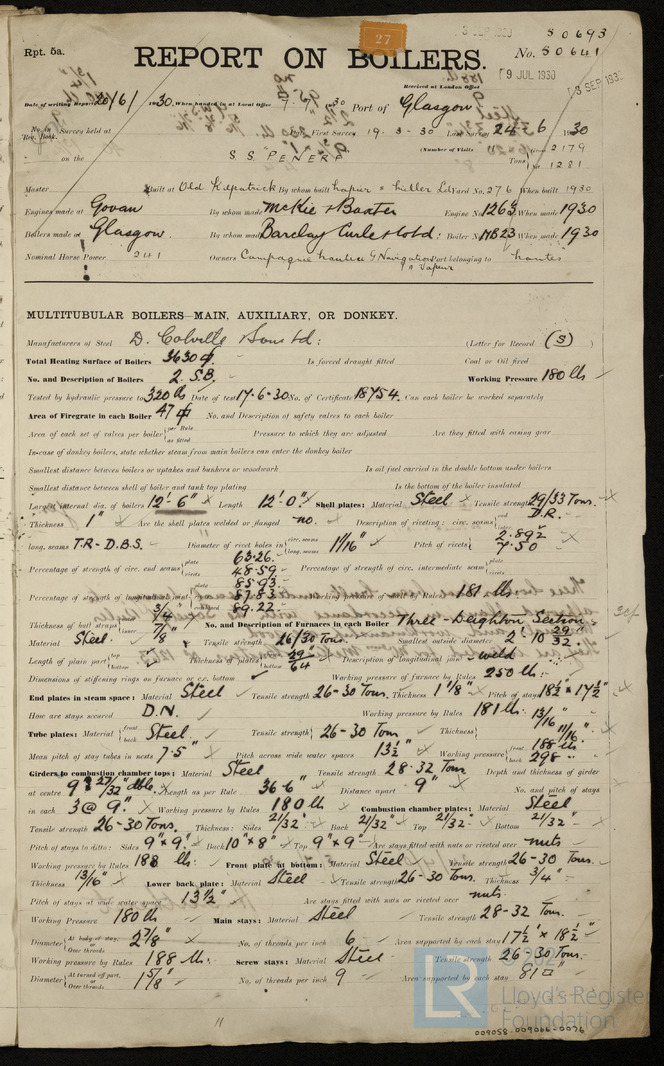 Rpt. 5a.
27
3 SEP 1930
50693
REPORT ON BOILERS.
No. 50641
Received at London Office
9 JUL 1930
3 SEP 193
Date of writing Report 20/6/ 1930. When handed in at Local Office 19 Port of Glasgow
No. in Reg. Book. Survey held at First Survey 19-3-30 Last Survey 24-6 1930
on the S.S. "PENERF" (Number of Visits ) Tons Gross 2179 Net 1281
Master Built at Old Kilpatrick By whom built Napier & Miller Ld Yard No. 276 When built 1930
Engines made at Govan By whom made McKie & Baxter Engine No. 1263 When made 1930
Boilers made at Glasgow. By whom made Barclay Curle & Co Ld: Boiler No. MB23 When made 1930
Nominal Horse Power 241 Owners Compagnie Nantaise Navigation a Vapeur Port belonging to Nantes
MULTITUBULAR BOILERS—MAIN, AUXILIARY, OR DONKEY.
Manufacturers of Steel D. Colville & Sons Ld: (Letter for Record (S) )
Total Heating Surface of Boilers 3630 Is forced draught fitted Coal or Oil fired
No. and Description of Boilers 2 S.B. Working Pressure 180 lbs
Tested by hydraulic pressure to 320 lbs Date of test 17-6-30 No. of Certificate 18754. Can each boiler be worked separately
Area of Firegrate in each Boiler 47 No. and Description of safety valves to each boiler
Area of each set of valves per boiler per Rule as fitted Pressure to which they are adjusted Are they fitted with easing gear
In case of donkey boilers, state whether steam from main boilers can enter the donkey boiler
Smallest distance between boilers or uptakes and bunkers or woodwork Is oil fuel carried in the double bottom under boilers
Smallest distance between shell of boiler and tank top plating Is the bottom of the boiler insulated
Largest internal dia. of boilers 12'-6" Length 12'-0" Shell plates: Material Steel Tensile strength 29/33 Tons.
Thickness 1" Are the shell plates welded or flanged no. Description of riveting: circ. seams D.R.
long. seams T.R-D.B.S. Diameter of rivet holes in circ. seams long. seams 1 1/16" Pitch of rivets 2.892" 7.50
Percentage of strength of circ. end seams plate 63.26 rivets 48.59 Percentage of strength of circ. intermediate seam plate rivets
Percentage of strength of longitudinal joint plate 85.93 rivets 87.83 combined 89.22 Working pressure of shell by Rules 181 lbs
Thickness of butt straps outer 3/4" inner 7/8" No. and Description of Furnaces in each Boiler Three-Deighton Section
Material Steel Tensile strength 26/30 Tons. Smallest outside diameter 2'-10 29/32"
Length of plain part top bottom Thickness of plates 29/64" Description of longitudinal joint weld
Dimensions of stiffening rings on furnace or c.c. bottom Working pressure of furnace by Rules 250 lbs
End plates in steam space: Material Steel Tensile strength 26-30 Tons. Thickness 1 1/8" Pitch of stays 18 1/2" x 17 1/2"
How are stays secured D.N. Working pressure by Rules 181 lbs.
Tube plates: Material front back Steel Tensile strength 26-30 Tons Thickness 13/16" 11/16"
Mean pitch of stay tubes in nests 7.5" Pitch across wide water spaces 13 1/2" Working pressure front 188 lbs back 298
Girders to combustion chamber tops: Material Steel Tensile strength 28-32 Tons Depth and thickness of girder
at centre 9" 27/32" dble. Length as per Rule 36-6" Distance apart 9" No. and pitch of stays
in each 3 @ 9". Working pressure by Rules 180 lb Combustion chamber plates: Material Steel
Tensile strength 26-30 Tons. Thickness: Sides 21/32" Back 21/32" Top 21/32" Bottom 21/32"
Pitch of stays to ditto: Sides 9" x 9" Back 10" x 8" Top 9" x 9" Are stays fitted with nuts or riveted over nuts
Working pressure by Rules 188 lbs. Front plate at bottom: Material Steel Tensile strength 26-30 Tons.
Thickness 13/16" Lower back plate: Material Steel Tensile strength 26-30 Tons. Thickness 3/4"
Pitch of stays at wide water space 13 1/2" Are stays fitted with nuts or riveted over nuts
Working Pressure 180 lb Main stays: Material Steel Tensile strength 28-32 Tons.
Diameter At body of stay, or Over threads 2 7/8" No. of threads per inch 6 Area supported by each stay 17 1/2" x 18 1/2"
Working pressure by Rules 188 lb. Screw stays: Material Steel Tensile strength 26-30 Tons.
Diameter At turned off part, or Over threads 1 5/8" No. of threads per inch 9 Area supported by each stay 81"
LR
Lloyd's Register
Foundation
009058-009066-0076